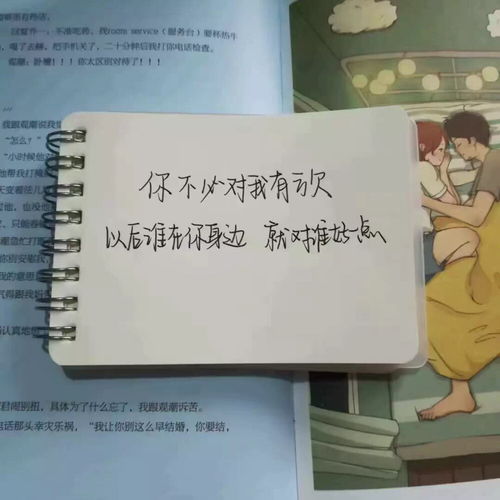 回复作一：不准吃药、找room service（服务台）要杯热牛
喝了去睡，把手机关了，二十分钟后我打你电话检查。
观潮：卧槽！！！你太区别对待了！！！
我跟观潮说我
“怎么？”
“小时候他
你不必对我有亏欠
以后谁在你身边 就对谁好点
君闹别扭，具体为了什么忘了，我跟观潮诉苦。
电话那头幸灾乐祸，“我让你别这么早结婚，你要结，